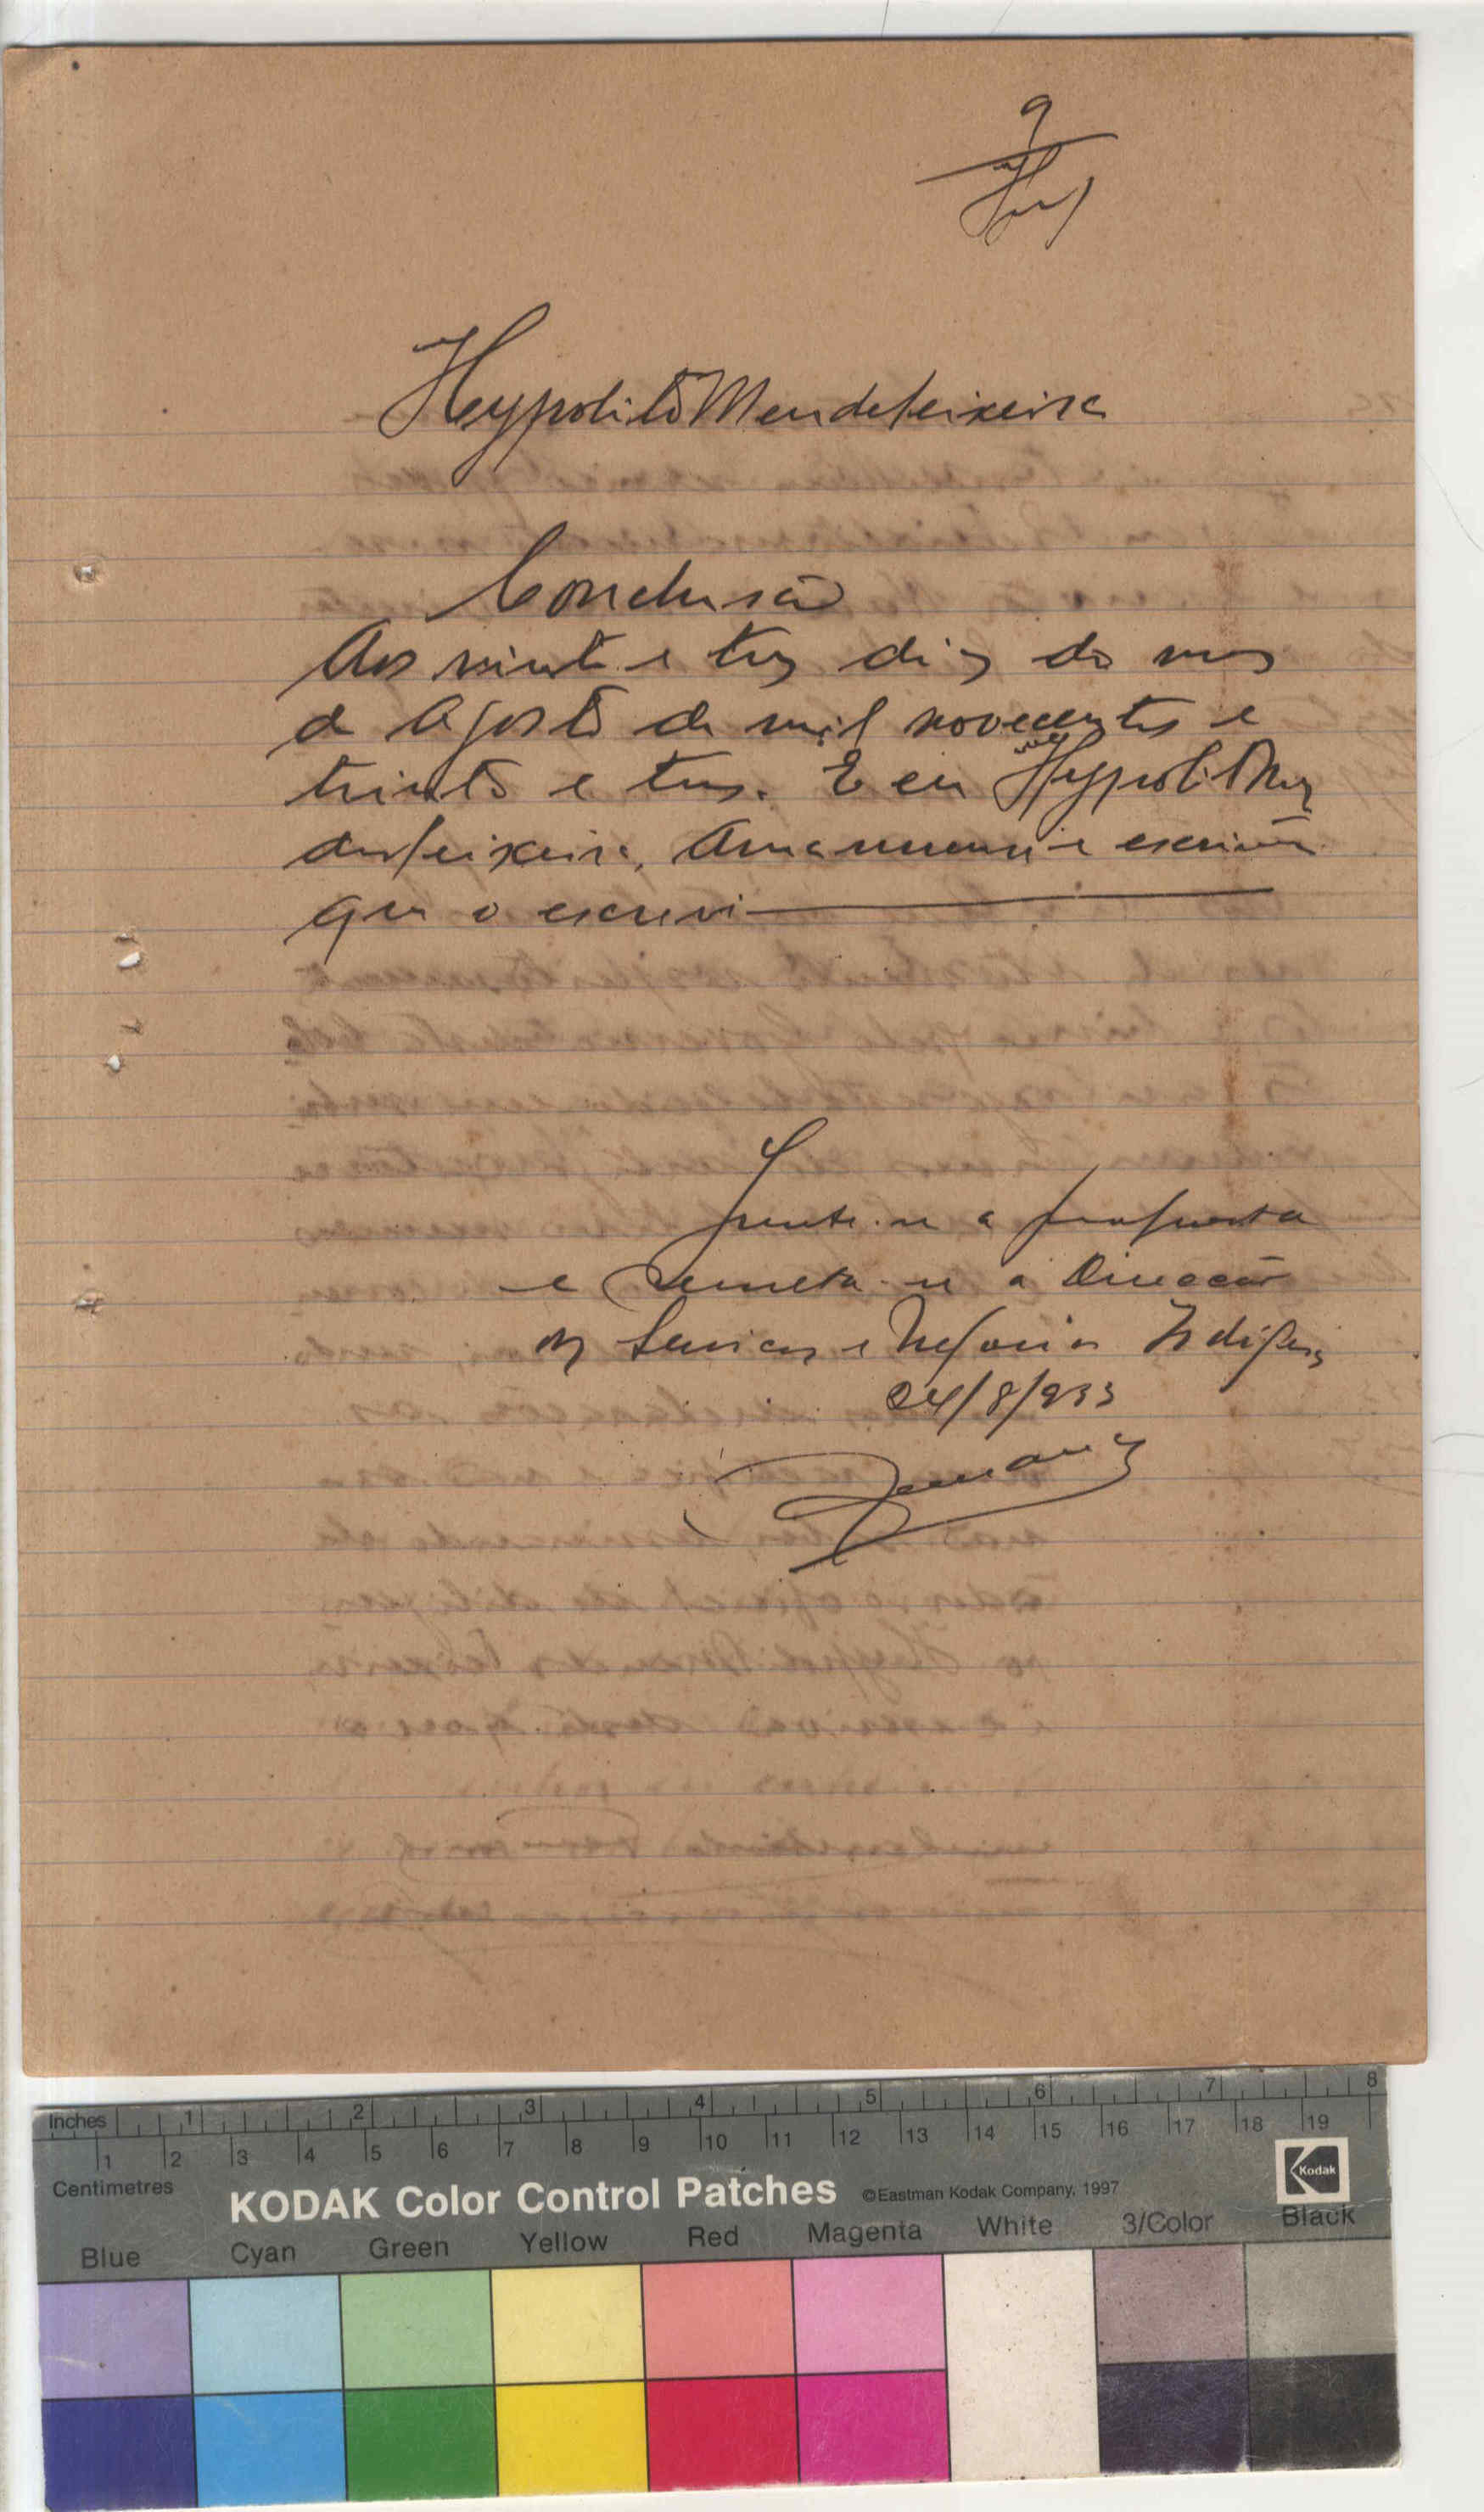 9
Hypolito Mendes Teixeira
Conclusão
Aos vinte e tres dias do mes
de Agosto de mil novecentos e
trinta e tres. E eu Hypolito Men
des Teixeira, Amanuense e escrivão
que o escrevi
Junte-se a proposta
e remeta-se a Direcção
dos Serviços e Negocios Indigenas
24/8/933
Inches 1 2 3 4 5 6 7 8
1 2 3 4 5 6 7 8 9 10 11 12 13 14 15 16 17 18 19
Centimetres
KODAK Color Control Patches ©Eastman Kodak Company, 1997 Kodak
Blue Cyan Green Yellow Red Magenta White 3/Color Black